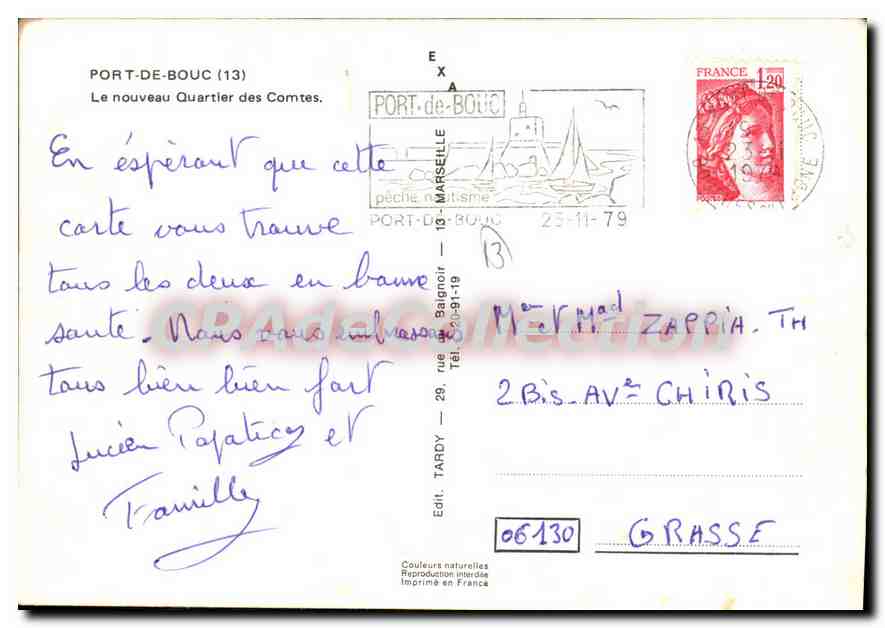 PORT-DE-BOUC (13)
Le nouveau Quartier des Comtes.
En éspérant que cette
carte vous trouve
tous les deux en bonne
santé. Nous vous embrassons
tous bien bien fort
Lucien et
Famille
EXA
Edit. TARDY — 29, rue Baignoir — 13 - MARSEILLE
Tél. 20-91-19
PORT-de-BOUC
pêche nautisme
PORT-DE-BOUC 23-11-79
FRANCE 1,20
13
Mer et Mad ZAPPIA. TH
2 Bis. AVe CHIRIS
06130 GRASSE
Couleurs naturelles
Reproduction interdite
Imprimé en France
CPAdeCollection